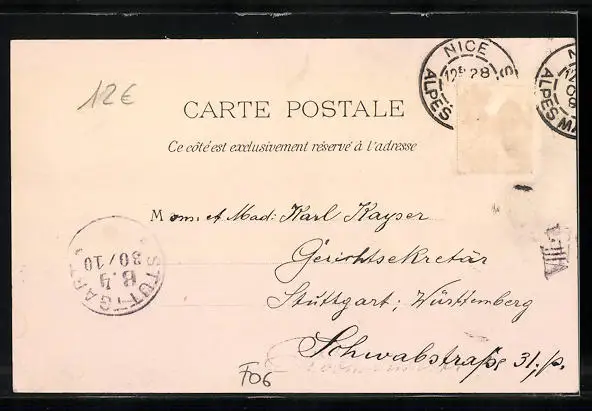 12€
NICE
12E 28
ALPES
12
ALPES MA
CARTE POSTALE
Ce côté est exclusivement réservé à l'adresse
M Mons. et Mad: Karl Kayser
Gerichtsekretär
Stuttgart; Württemberg
Schwabstraße 31,/p.
STUTTGART
B.4
30/10
F06